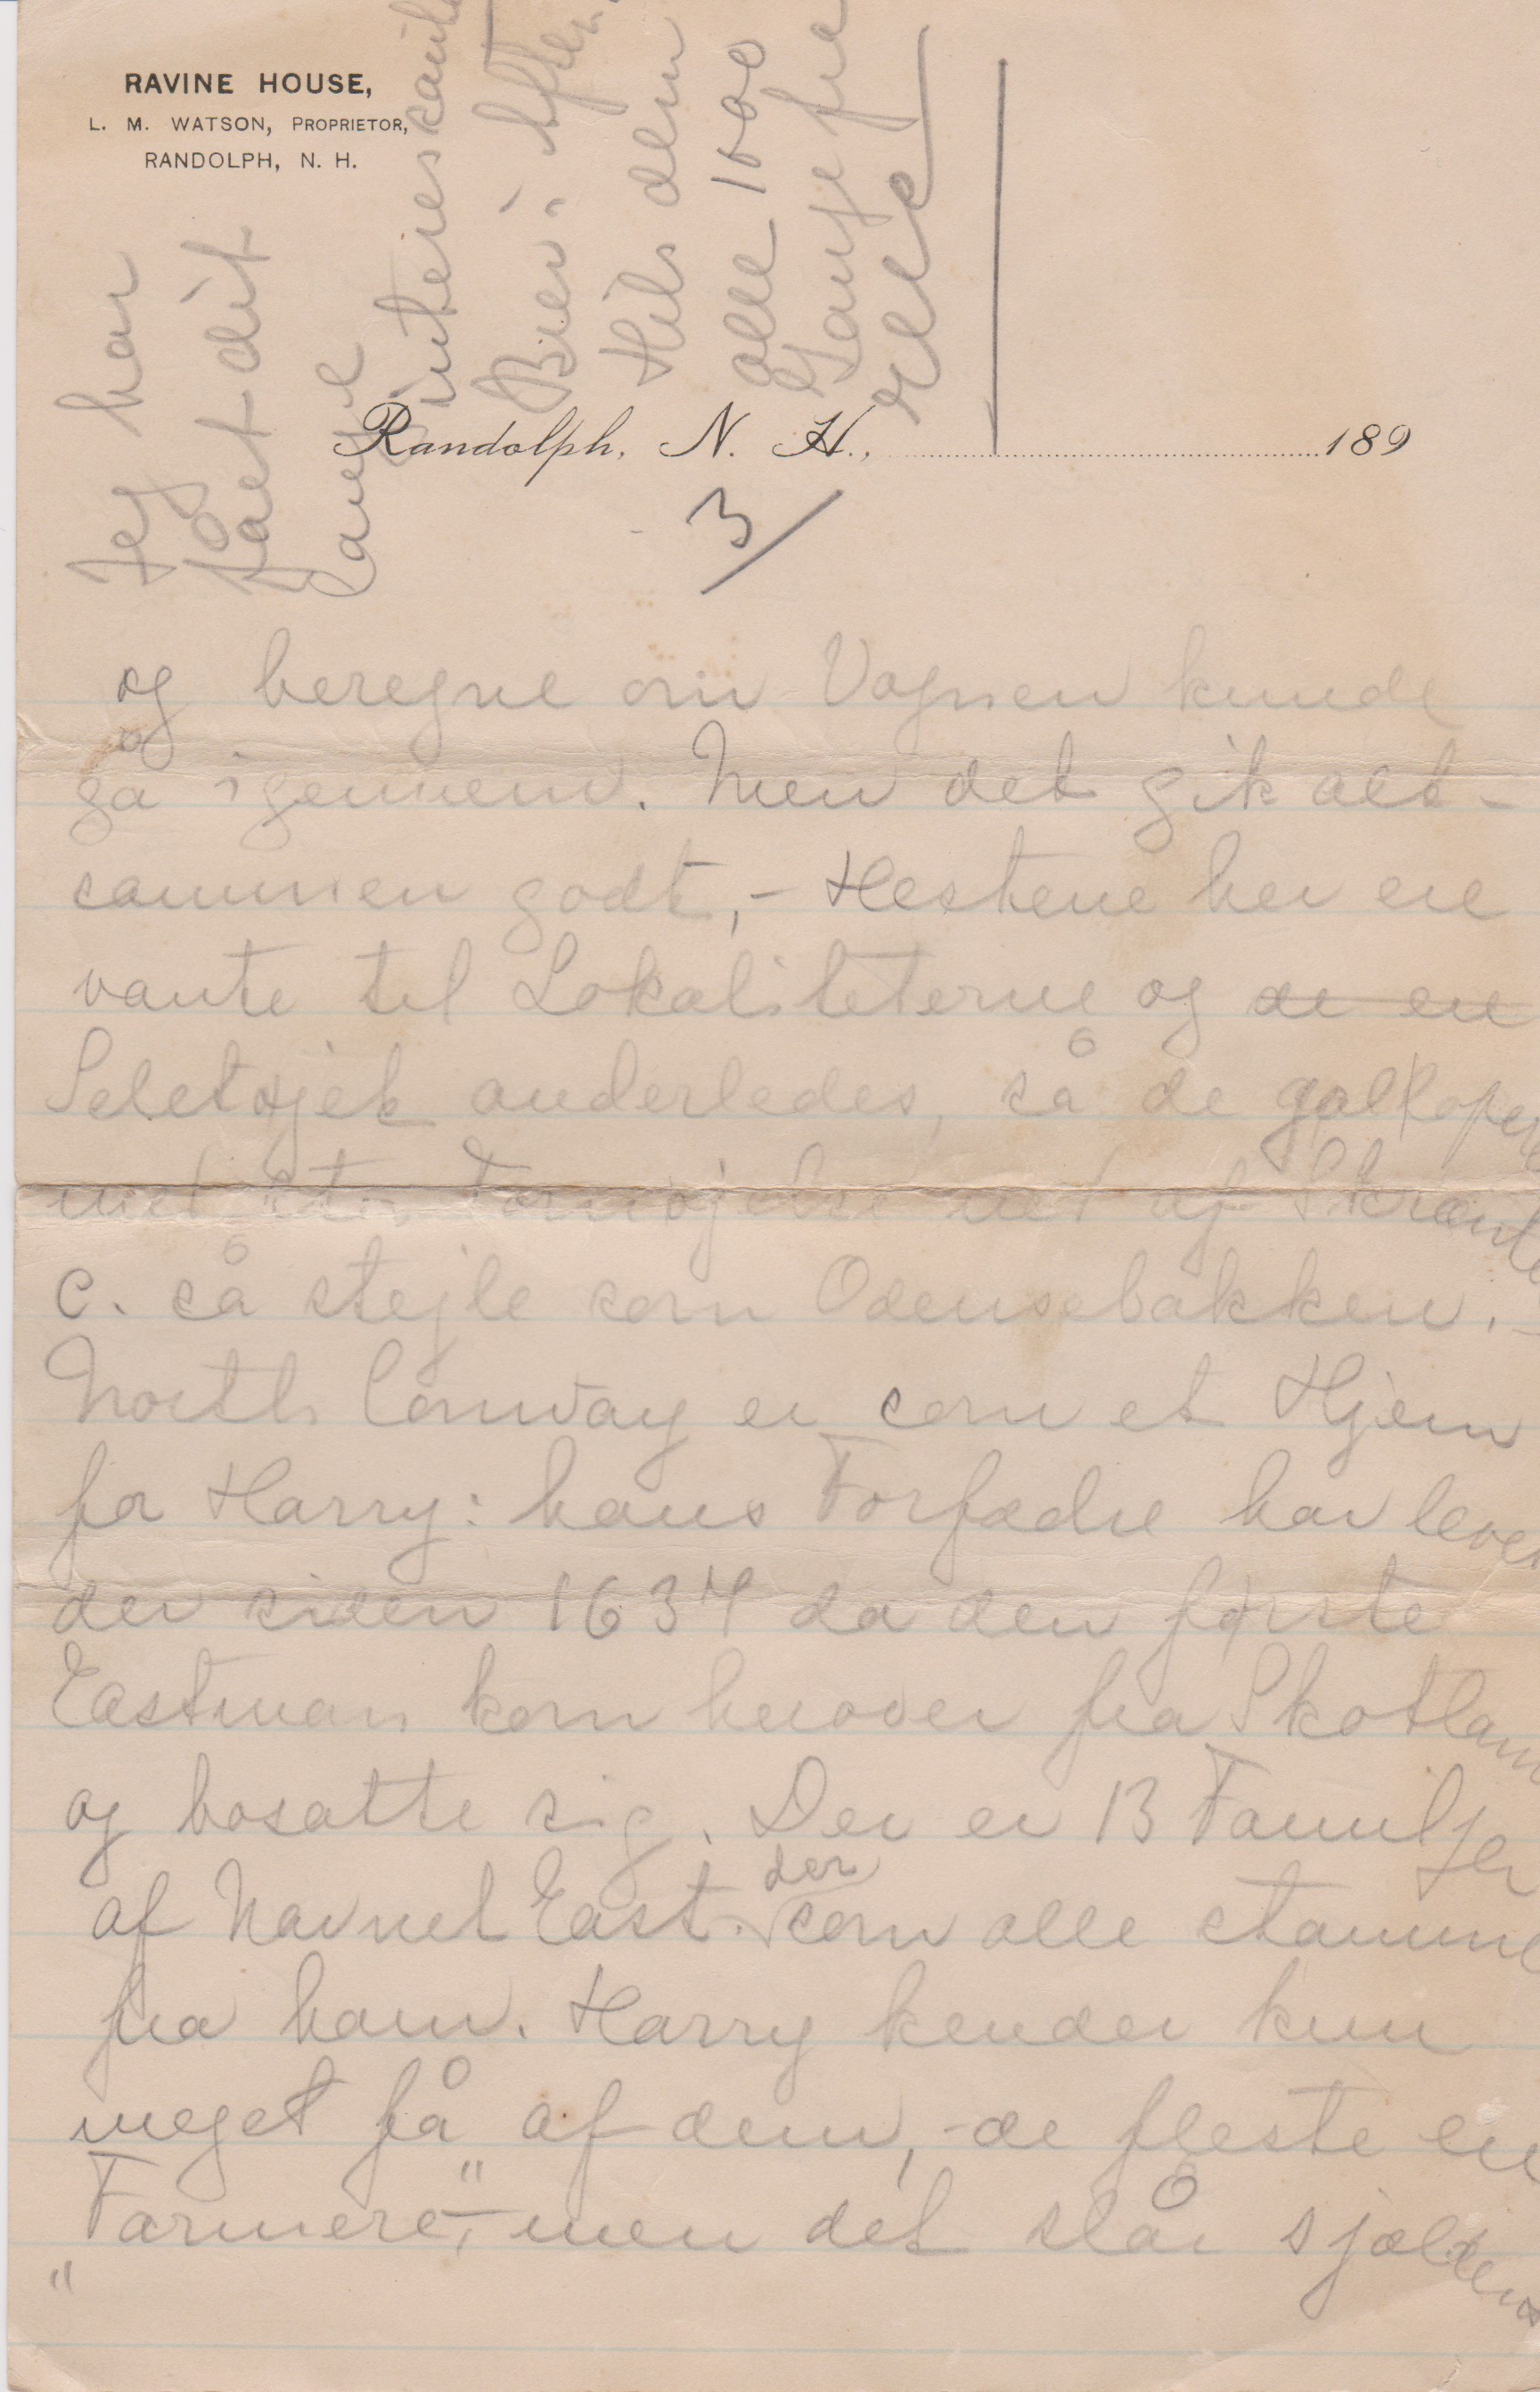 RAVINE HOUSE,
L. M. WATSON, PROPRIETOR,
RANDOLPH, N. H.
Jeg har
fået dit
lange
intereskante
Brev i Aften.
Hils dem
alle 1000
Gange fra
Elle
Randolph, N. H., 189
3/
og beregne om Vognen kunde
gå igennem. Men det gik alt-
sammen godt, - Hestene her ere
vante til Lokaliteterne og de ere
Seletøjet anderledes, så de gallopere
med stor Fornøjelse ned af Skrænter
c. så stejle som Odensebakken. -
North Conway er som et Hjem
for Harry: hans Forfædre har levet
der siden 1637 da den første
Eastman kom herover fra Skotland
og bosatte sig. Der er 13 Familjer
af Navnet East. der som alle stamme
fra ham. Harry kender kun
meget få af dem, - de fleste ere
"Farmere", - men det slår sjældent